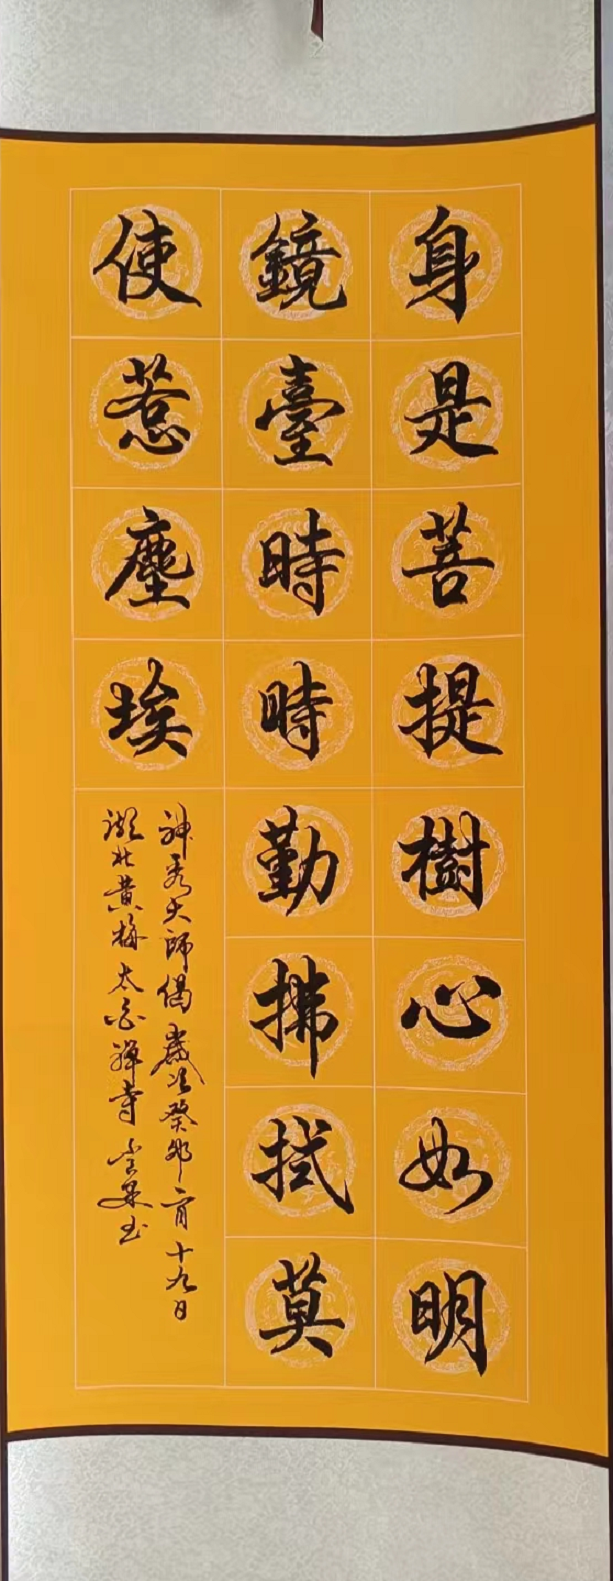 身是菩提樹心如明
鏡臺時時勤拂拭莫
使惹塵埃
神秀大師偈歲次癸卯二月十九日
湖北黃梅太白禪寺書